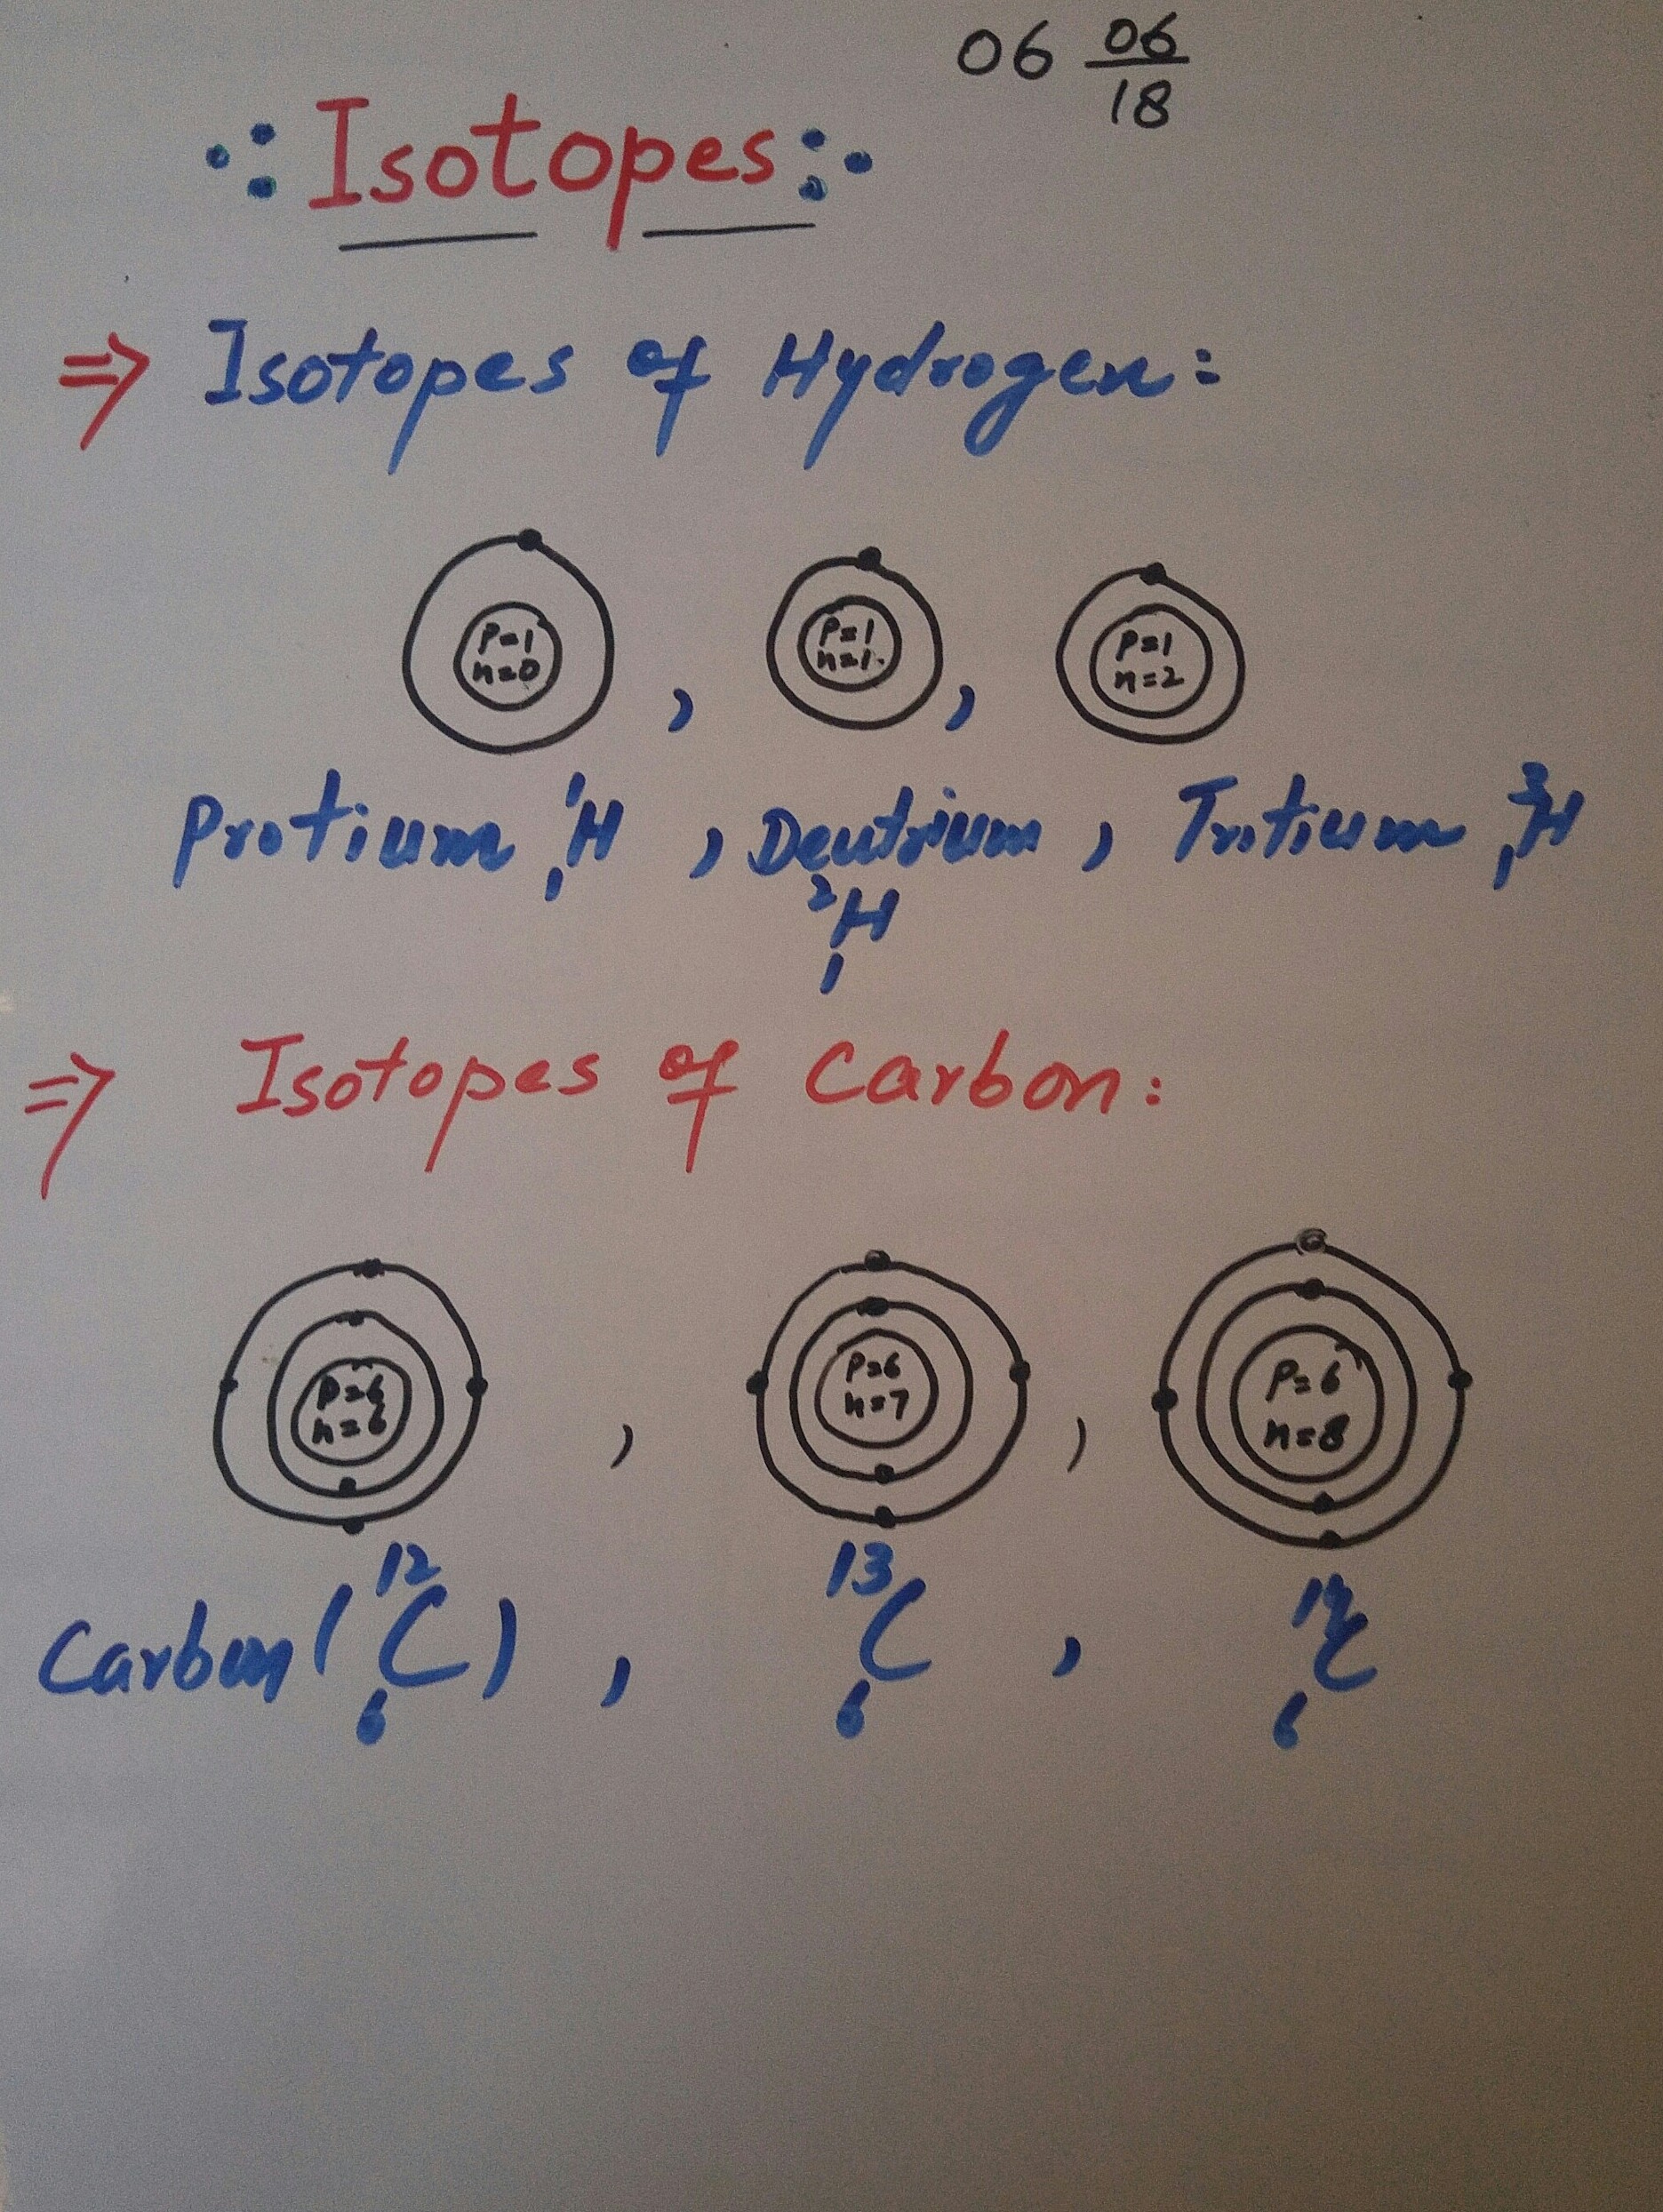 06 06/18
Isotopes:
⇒ Isotopes of Hydrogen:
P=1 P=1 P=1
n=0 , n=1 , n=2
Protium ¹₁H , Deutrium , Tritium ³₁H
²₁H
⇒ Isotopes of Carbon:
P=6 P=6 P=6
n=6 , n=7 , n=8
Carbon (¹²₆C) , ¹³₆C , ¹⁴₆C